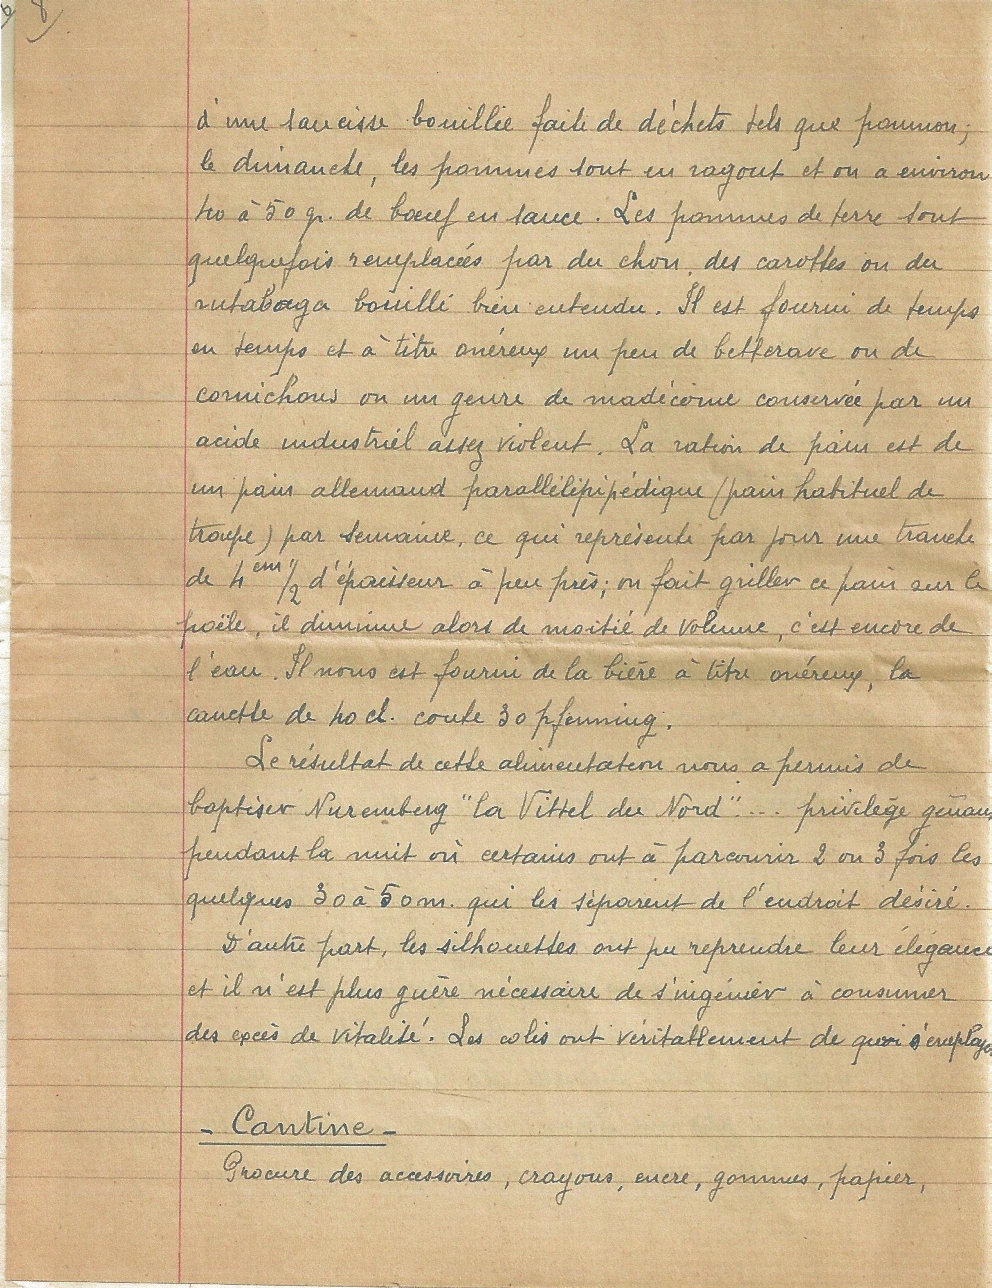 8
d'une saucisse bouillie faite de déchets tels que poumon;
le dimanche, les pommes sont en ragout et on a environ
40 à 50 gr. de bœuf en sauce. Les pommes de terre sont
quelquefois remplacées par du chou, des carottes ou du
rutabaga bouilli bien entendu. Il est fourni de temps
en temps et à titre onéreux un peu de betterave ou de
cornichons ou un genre de madécoine conservée par un
acide industriel assez violent. La ration de pain est de
un pain allemand parallélipipédique (pain habituel de
troupe) par semaine, ce qui représente par jour une tranche
de 4 cm 1/2 d'épaisseur à peu près; on fait griller ce pain sur le
poële, il diminue alors de moitié de volume, c'est encore de
l'eau. Il nous est fourni de la bière à titre onéreux, la
canette de 40 cl. coute 30 pfenning.
Le résultat de cette alimentation nous a permis de
baptiser Nuremberg "la Vittel du Nord".... privilège gênant
pendant la nuit où certains ont à parcourir 2 ou 3 fois les
quelques 30 à 50 m. qui les séparent de l'endroit désiré.
D'autre part, les silhouettes ont pu reprendre leur élégance
et il n'est plus guère nécessaire de s'ingénier à consumer
des excès de vitalité. Les colis ont véritablement de quoi s'employer
- Cantine -
Procure des accessoires, crayons, encre, gommes, papier,